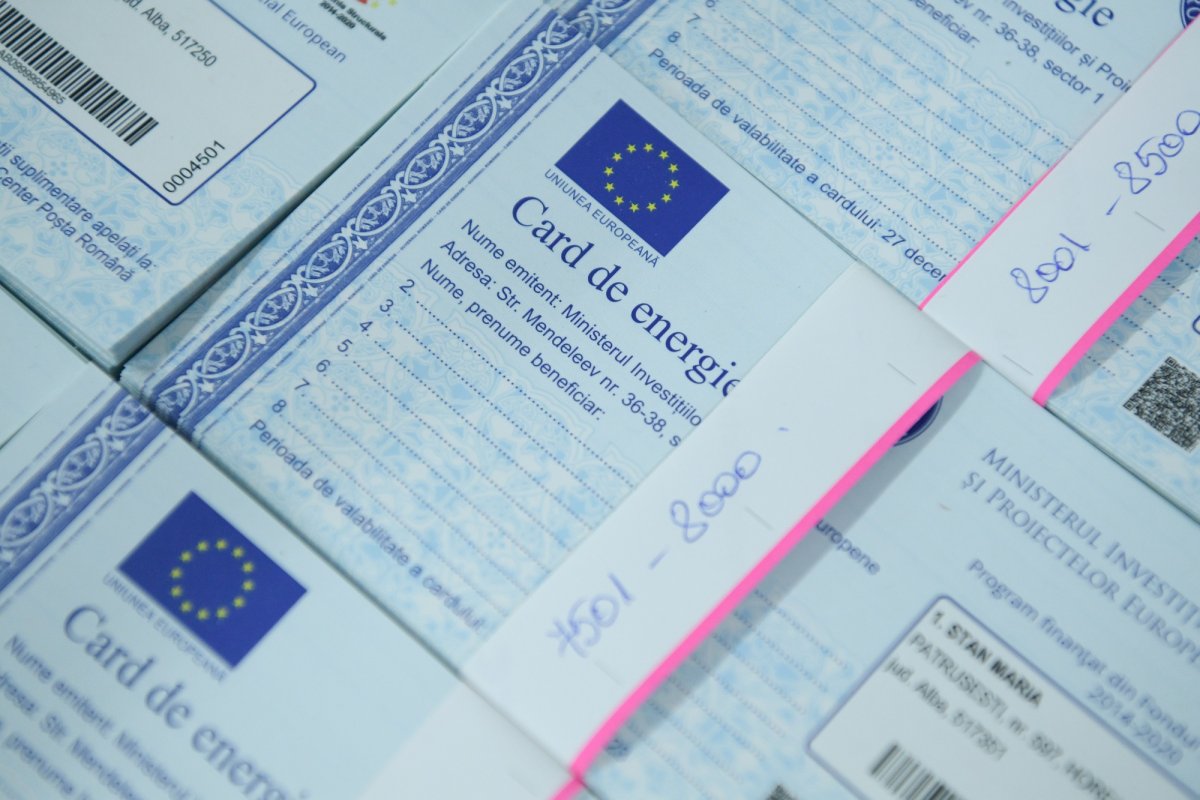 jud. Alba, 517250
0004501
2014-2020
Social European
ții suplimentare apelați la:
Center Poșta Română
UNIUNEA EUROPEANĂ
Card de energie
Nume emitent: Ministerul Investițiilo
Adresa: Str. Mendeleev nr. 36-38, s
Nume, prenume beneficiar:
2.
3.
4.
5.
6
7
8
Perioada de valabilitate a cardului:
7501 - 8000
energie
Investițiilor și Proi
nr. 36-38, sector 1
beneficiar:
6
7
8
Perioada de valabilitate a cardului: 27 decem
8001 - 8500
UNIUNEA EUROPEANĂ
Card de energi
Nume emitent: Ministerul
dresa: Str. Mendel
, prenume
uropene
MINISTERUL INVESTIȚI
ȘI PROIECTELOR EUROPE
Program finanțat din Fondu
2014-2020
1. STAN MARIA
PATRUSESTI, nr. 697, HORE
jud. Alba, 517361